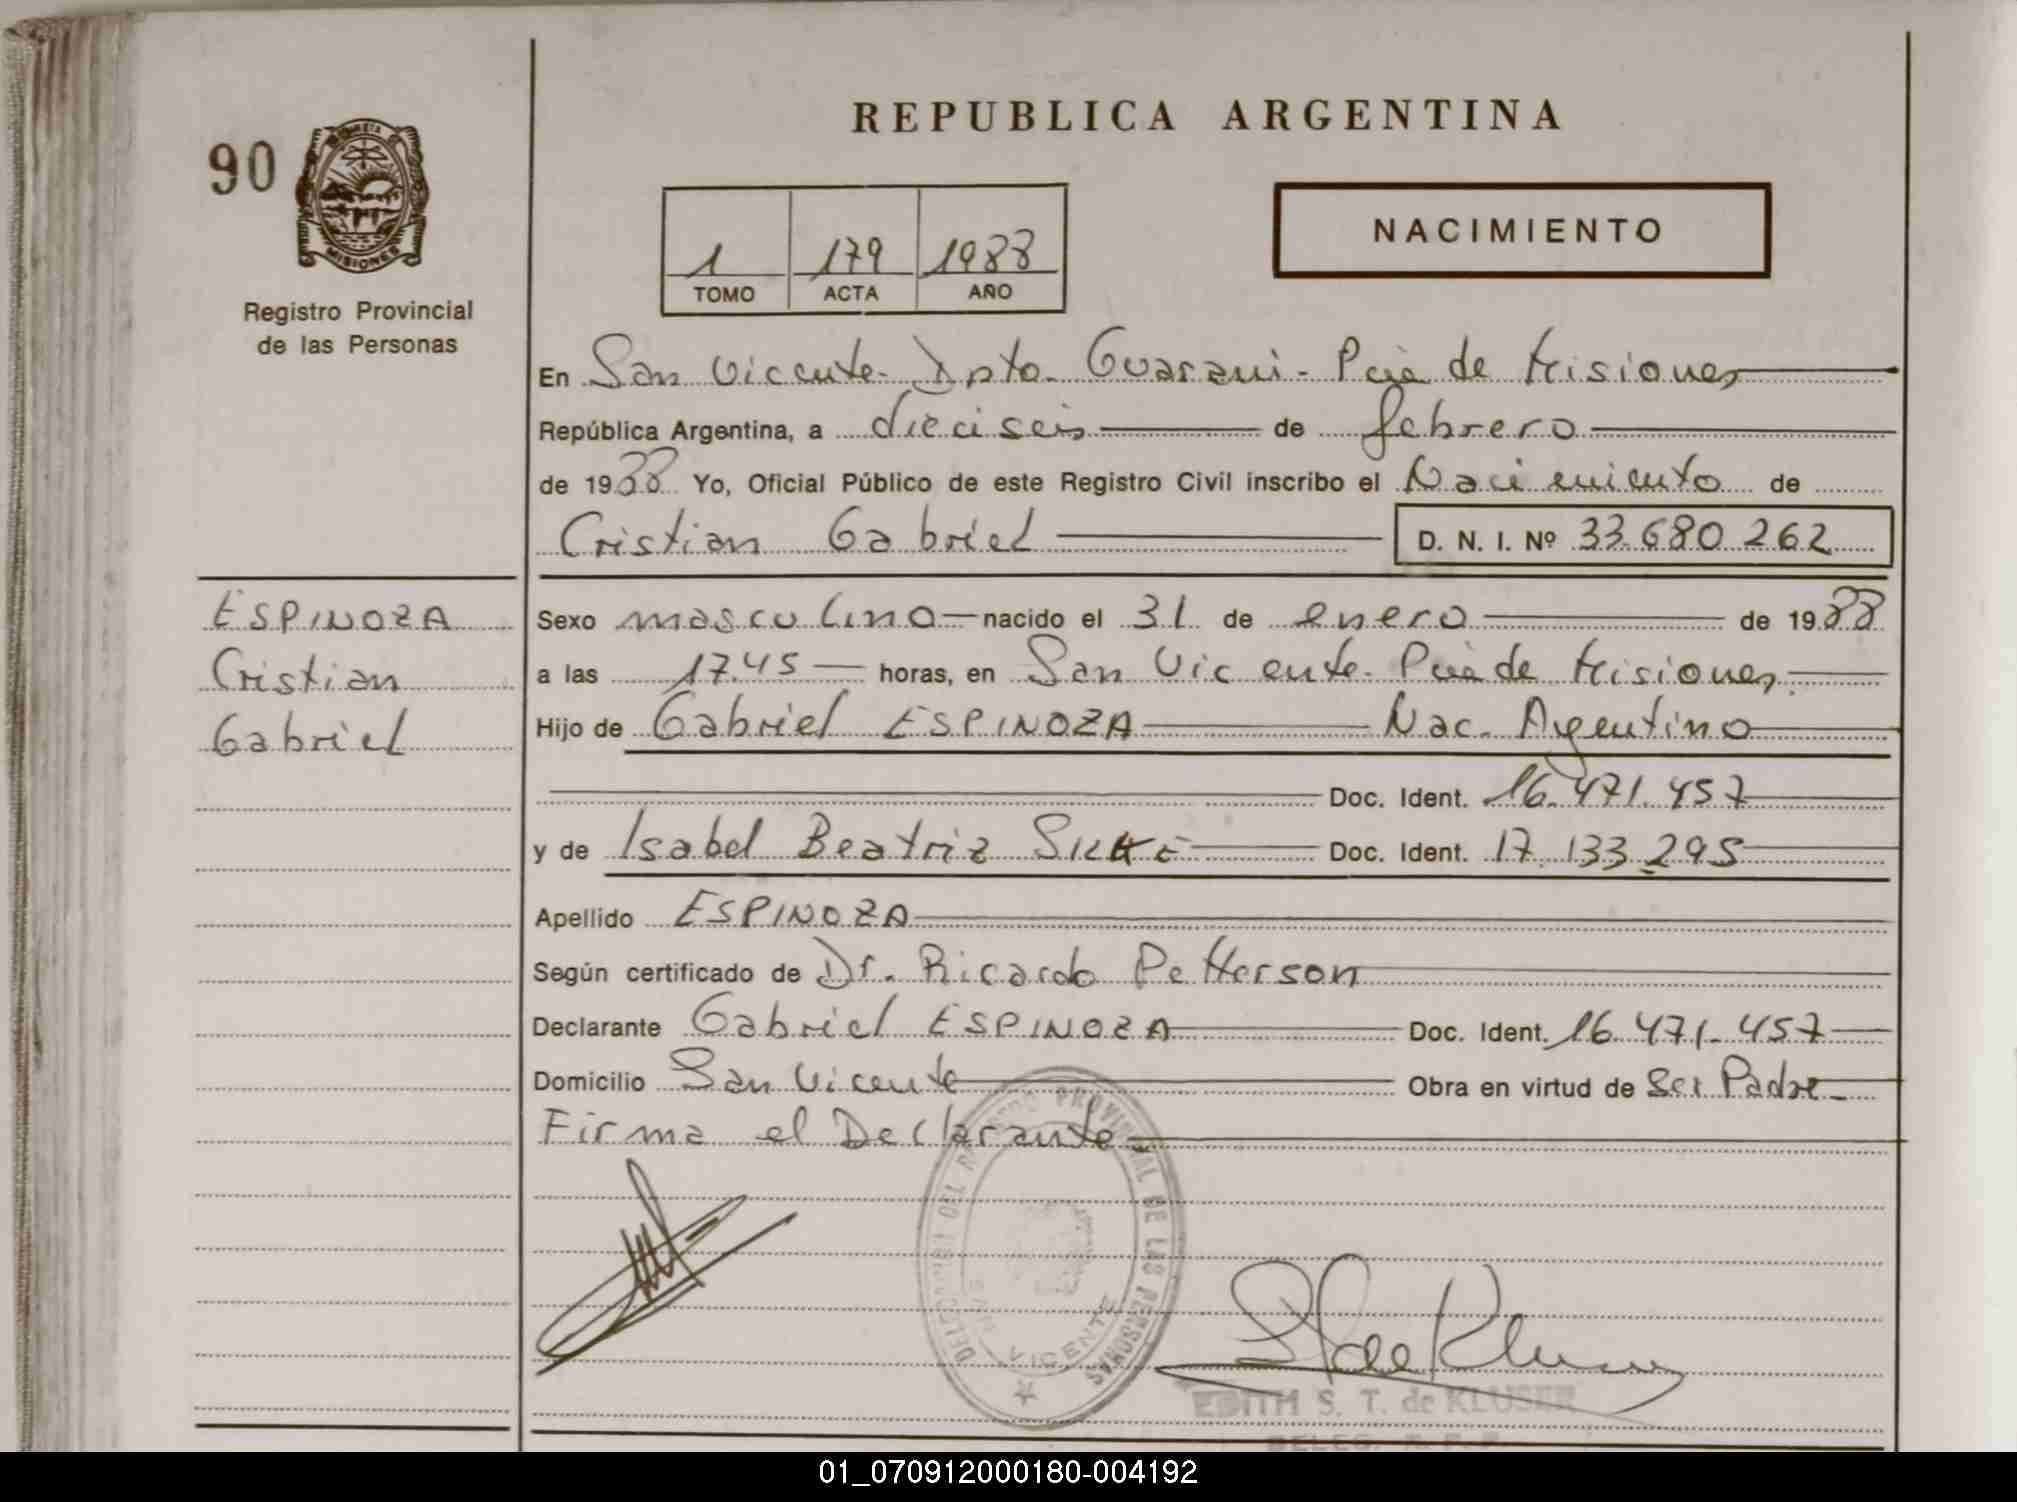 REPUBLICA ARGENTINA
90
MISIONES
Registro Provincial
de las Personas
1 179 1988
TOMO ACTA AÑO
NACIMIENTO
En San Vicente - Dpto. Guarani - Pcia de Misiones
República Argentina, a dieciseis de febrero
de 1988 Yo, Oficial Público de este Registro Civil inscribo el Nacimiento de
Cristian Gabriel D. N. I. Nº 33.680.262
ESPINOZA
Cristian
Gabriel
Sexo masculino nacido el 31 de enero de 1988
a las 17.45 horas, en San Vicente - Pcia de Misiones.
Hijo de Gabriel ESPINOZA Nac. Argentino
Doc. Ident. 16.471.457
y de Isabel Beatriz Doc. Ident. 17.133.295
Apellido ESPINOZA
Según certificado de Dr. Ricardo Petterson
Declarante Gabriel ESPINOZA Doc. Ident. 16.471.457
Domicilio San Vicente Obra en virtud de Ser Padre
Firma el Declarante
DELEGACION DEL REGISTRO PROVINCIAL DE LAS PERSONAS
SAN VICENTE
EDITH S. T. de KLUSER
DELEG. R. P. P.
01_070912000180-004192